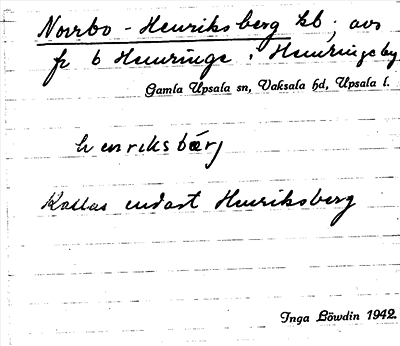 Norrbo - Henriksberg kb, avs
fr b Hemringe, Hemringeby
Gamla Upsala sn, Vaksala hd, Upsala l.
henriksbærj
Kallas endast Henriksberg
Inga Löwdin 1942.